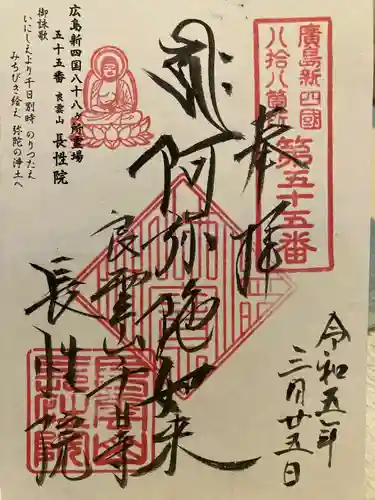 廣島新四國
八拾八箇所
第五十五番
奉拝
令和五年
三月廿五日
阿弥陀如来
良雲山千日寺
長性院
広島新四国八十八ヶ所霊場
五十五番 良雲山 長性院
御詠歌
いにしえより千日別時 のりつたえ
みちびき給え 弥陀の浄土へ